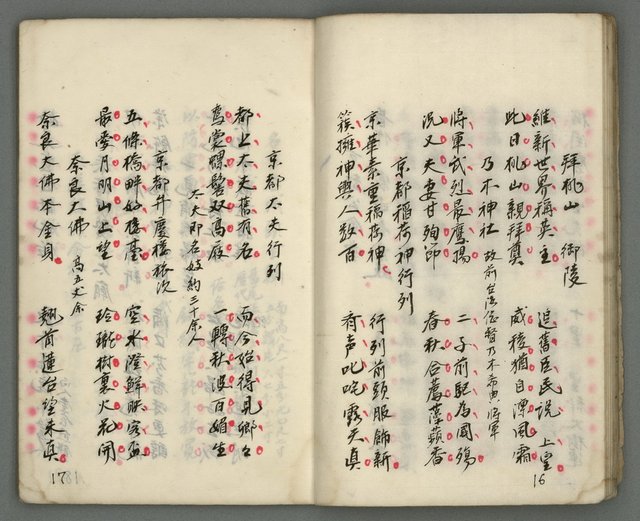 拜桃山御陵
維新世界稱英主 追舊臣民說上皇
此日桃山親拜奠 威稜猶自凜風霜
乃木神社 故前台湾総督乃木希典將軍
將軍武烈最鷹揚 二子前駈為國殤
況又夫妻甘殉節 春秋合薦藻蘋香
京都稲荷神行列
京華素重稲荷神 行列前頭服飾新
簇擁神輿人数百 有声叱咤露天真
16
京都太夫行列
都上太夫舊有名 而今始得見卿々
鳥裳 髻双高履 一轉秋波百媚生
太夫即名妓約三十余人
京都升慶楼旅次
五條橋畔好楼臺 空水澄鮮映
最愛月明山上望 玲瓏樹裏火花開
奈良大佛 高五丈余
奈良大佛本金身 翹首蓮台望未真
17